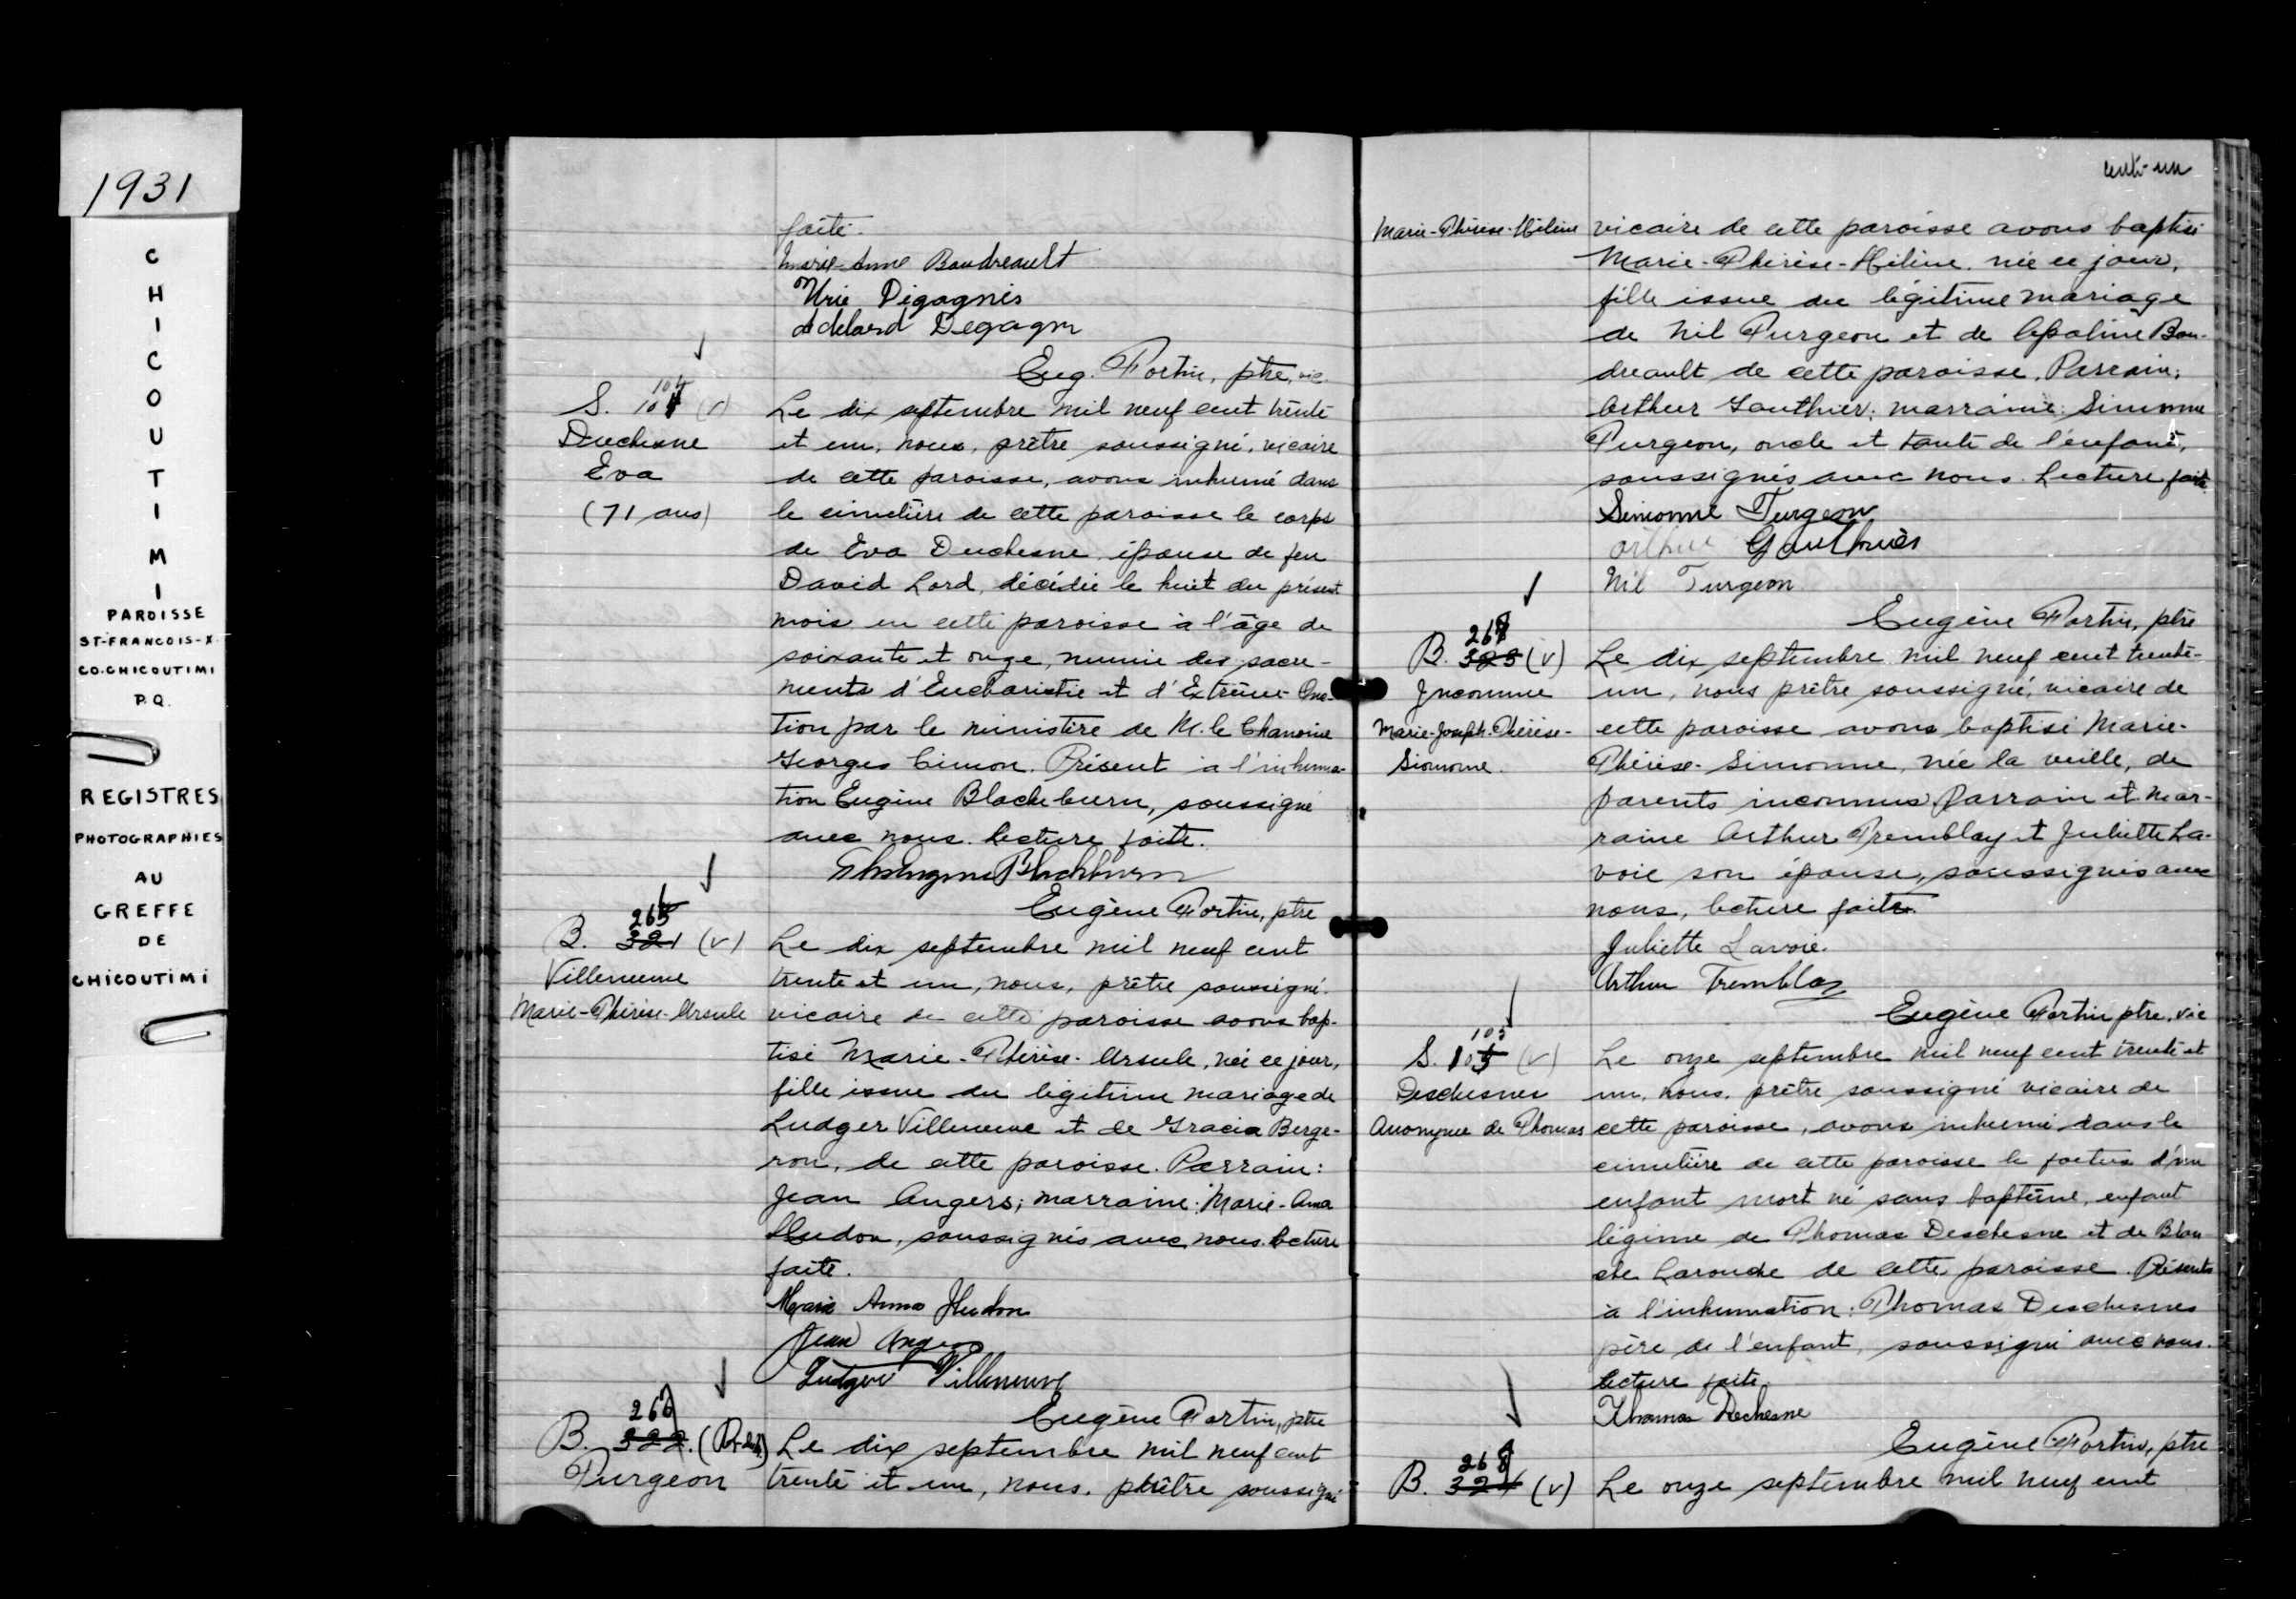 1931
CHICOUTIMI
PAROISSE
ST-FRANCOIS-X
CO. CHICOUTIMI
P.Q.
REGISTRES
PHOTOGRAPHIES
AU
GREFFE
DE
CHICOUTIMI
faite.
Marie-Anne Boudreault
Urie Dégagnés
Adélard Degagn
Eug. Fortin, ptre, vic.
104
S. 104 (v)
Duchesne
Eva
(71 ans)
Le dix septembre mil neuf cent trente
et un, nous, prêtre soussigné, vicaire
de cette paroisse, avons inhumé dans
le cimetière de cette paroisse le corps
de Eva Duchesne épouse de feu
David Lord, décédée le huit du présent
mois en cette paroisse à l'âge de
soixante et onze, munie des sacre-
ments d'Eucharistie et d'Extrême-Onc-
tion par le ministère de M. le Chanoine
Georges Cimon. Présent à l'inhuma-
tion Eugène Blackburn, soussigné
avec nous. Lecture faite.
Blackburn
Eugène Fortin, ptre
265
B. 321 (v)
Villeneuve
Marie-Thérèse-Ursule
Le dix septembre mil neuf cent
trente et un, nous, prêtre soussigné
vicaire de cette paroisse avons bap-
tisé Marie-Thérèse-Ursule, née ce jour,
fille issue du légitime mariage de
Ludger Villeneuve et de Gracia Berge-
ron, de cette paroisse. Parrain:
Jean Angers; marraine: Marie-Anna
Hudon, soussignés avec nous. Lecture
faite.
Marie Anna Hudon
Jean Angers
Ludger Villeneuve
Eugène Fortin, ptre
266
B. 322. (R-24)
Turgeon
Le dix septembre mil neuf cent
trente et un, nous, prêtre soussigné
cent-un
Marie-Thérèse-Hélène
vicaire de cette paroisse avons baptisé
Marie-Thérèse-Hélène née ce jour,
fille issue du légitime mariage
de Nil Turgeon et de Lépoline Bou-
dreault de cette paroisse. Parrain:
Arthur Gauthier; marraine: Simonne
Turgeon, oncle et tante de l'enfant,
soussignés avec nous. Lecture faite.
Simonne Turgeon
Arthur Gauthier
Nil Turgeon
Eugène Fortin, ptre
267
B. 323 (v)
Inconnue
Marie-Joseph-Thérèse-
Simonne.
Le dix septembre mil neuf cent trente-
un, nous prêtre soussigné, vicaire de
cette paroisse avons baptisé Marie-
Thérèse-Simonne, née la veille, de
parents inconnus. Parrain et mar-
raine Arthur Tremblay et Juliette La-
voie son épouse, soussignés avec
nous, lecture faite.
Juliette Lavoie.
Arthur Tremblay
Eugène Fortin ptre. vic
105
S. 105 (v)
Deschesnes
Anonyme de Thomas
Le onze septembre mil neuf cent trente et
un, nous, prêtre soussigné vicaire de
cette paroisse, avons inhumé dans le
cimetière de cette paroisse le foetus d'un
enfant mort né sans baptême, enfant
légime de Thomas Deschesne et de Blan-
che Larouche de cette paroisse. Présents
à l'inhumation: Thomas Deschesnes
père de l'enfant, soussigné avec nous.
Lecture faite.
Thomas Dechesne
Eugène Fortin, ptre
268
B. 324 (v)
Le onze septembre mil neuf cent